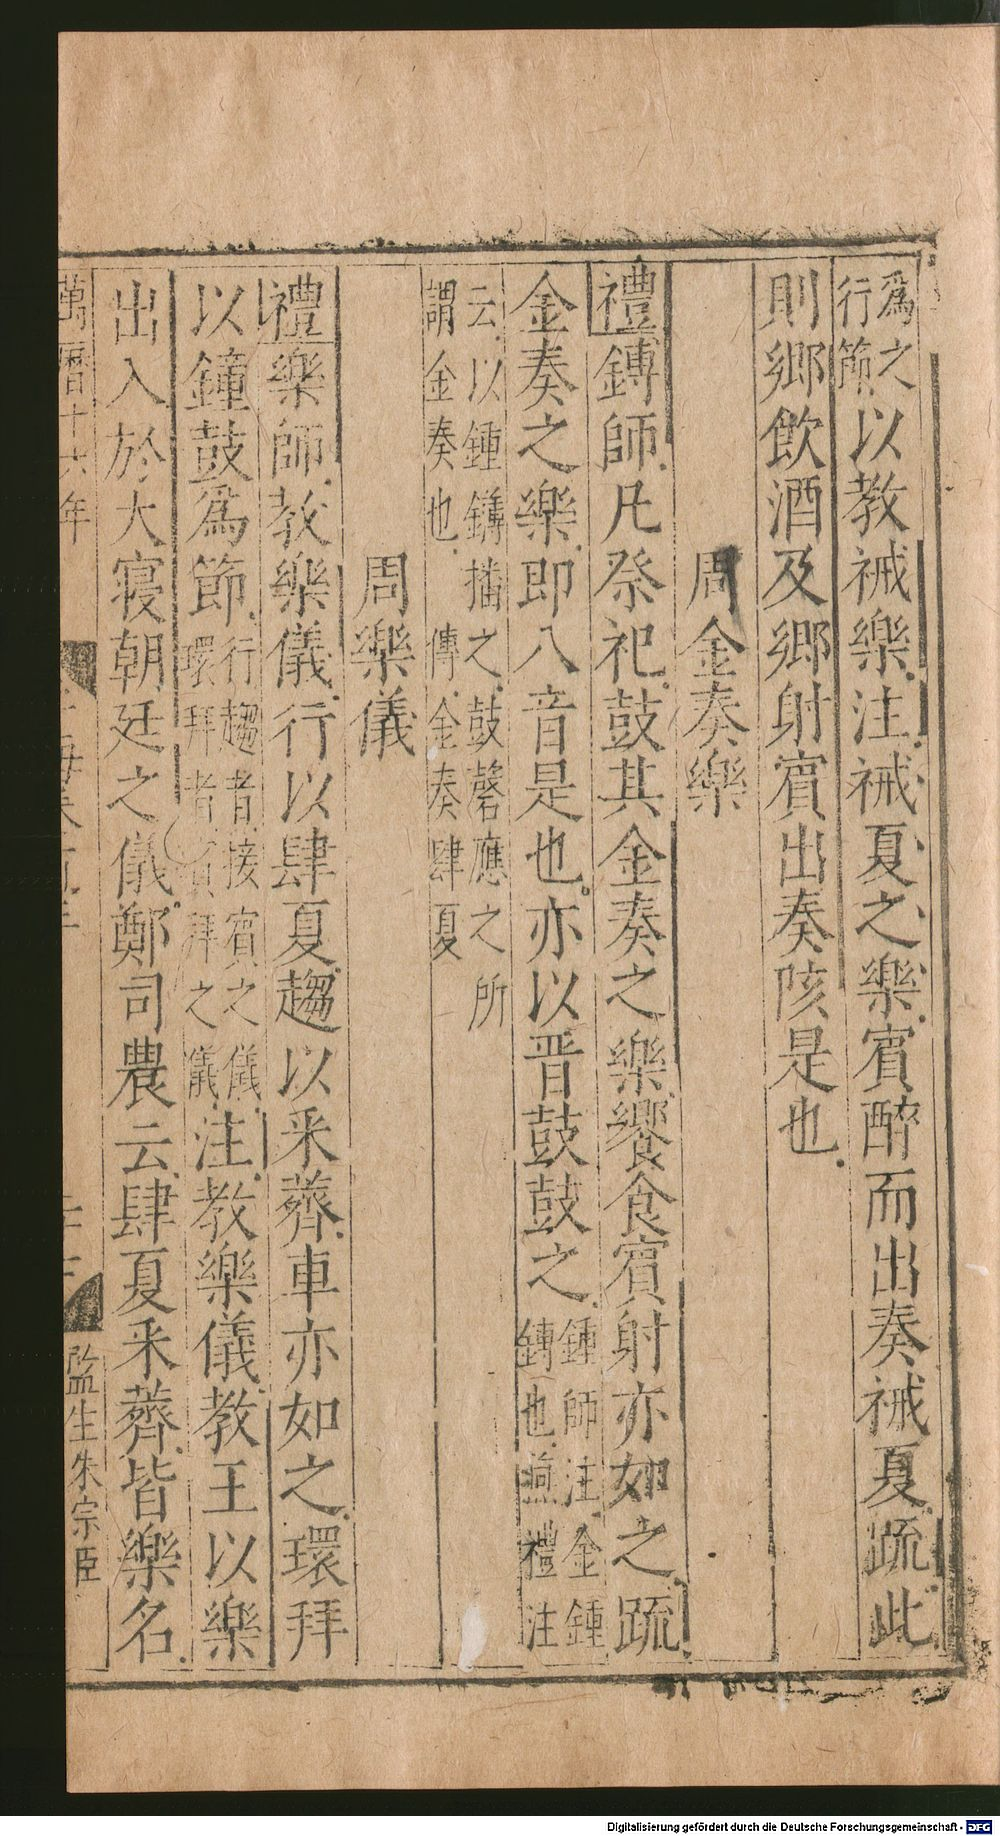 爲之行節以教祴樂注祴夏之樂賓醉而出奏祴夏疏此
則鄉飲酒及鄉射賓出奏陔是也
周金奏樂
禮鎛師凡祭祀鼓其金奏之樂饗食賓射亦如之疏
金奏之樂即八音是也亦以晋鼓鼓之鍾師注金鍾鎛也燕禮注
云以鍾鎛播之鼓磬應之所謂金奏也傳金奏肆夏
周樂儀
禮樂師教樂儀行以肆夏趨以采薺車亦如之環拜
以鐘鼓爲節行趨者接賓之儀環拜者拜之儀注教樂儀教王以樂
出入於大寝朝廷之儀鄭司農云肆夏采薺皆樂名
萬曆十六年
監生朱宗臣
Digitalisierung gefördert durch die Deutsche Forschungsgemeinschaft - DFG